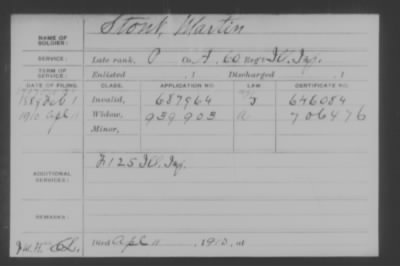 NAME OF SOLDIER: Stout, Martin
SERVICE: Late rank, P Co. A, 60 Reg't Ill. Inf.
TERM OF SERVICE: Enlisted , 1 Discharged , 1
DATE OF FILING. CLASS. APPLICATION NO. LAW CERTIFICATE NO.
1889 Feb 1 Invalid, 687964 J 646084
1910 Apl 11 Widow, 939903 a 706476
Minor,
ADDITIONAL SERVICES: F 125 Ill. Inf.
REMARKS:
Died Apl 11 , 1910, at